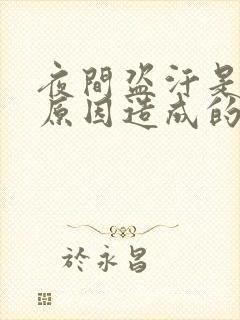 夜間盜汗是
原因造成的
於永昌